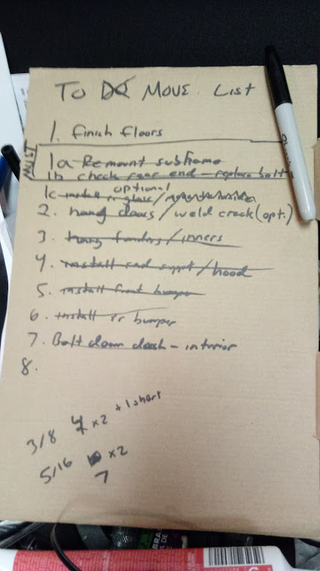 To Do Move List
1. finish floors
MUST
1a Remount subframe
1b check rear end - replace bolts
optional
1c install rr glass/
2. hang doors/weld crack (opt.)
3. hang fenders/inners
4. install rad supprt/hood
5. install front bumper
6. install rr bumper
7. Bolt down dash - interior
8.
3/8 4 x2 + 1 short
5/16 x2
7